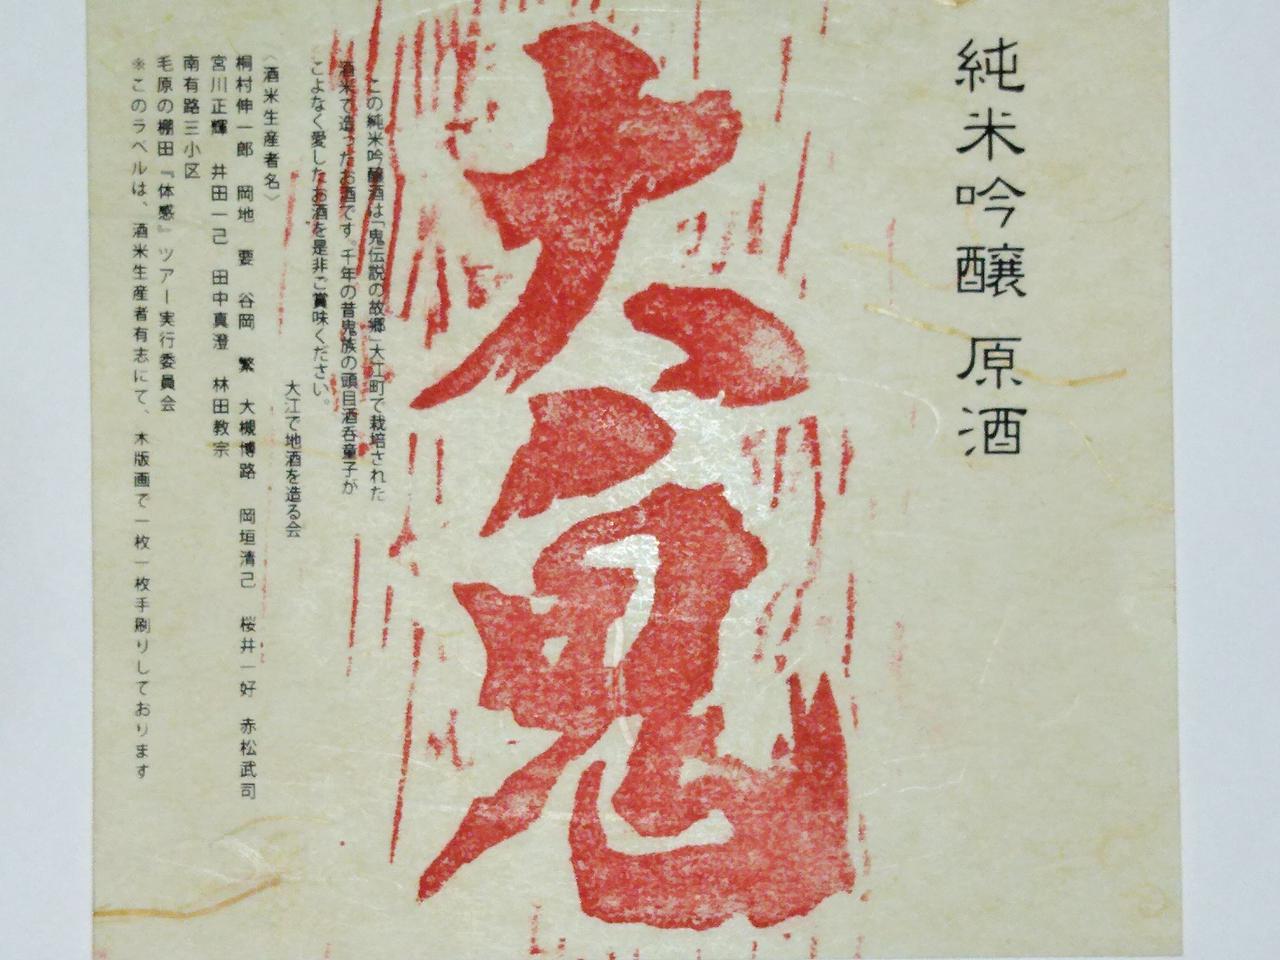 純米吟醸 原酒
大鬼
この純米吟醸酒は「鬼伝説の故郷」大江町で栽培された
酒米で造ったお酒です。千年の昔鬼族の頭目酒呑童子が
こよなく愛したお酒を是非ご賞味ください。
大江で地酒を造る会
〈酒米生産者名〉
桐村伸一郎 岡地 要 谷岡 繁 大槻博路 岡垣清己 桜井一好 赤松武司
宮川正輝 井田一己 田中真澄 林田教宗
南有路三小区
毛原の棚田『体感』ツアー実行委員会
※このラベルは、酒米生産者有志にて、木版画で一枚一枚手刷りしております